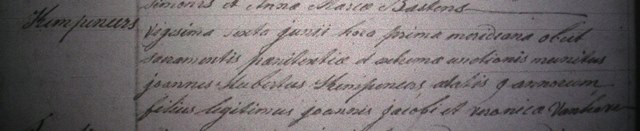 simoneis et Anna Maria Bastens
Kempeneers
vigesima sexta junii hora prima meridiana obiit
sacramentis pœnitentiæ et extrema unctionis munitus
joannes Hubertus Kempeneers ætatis 9 annorum
filius legitimus joannis jacobi et veronica